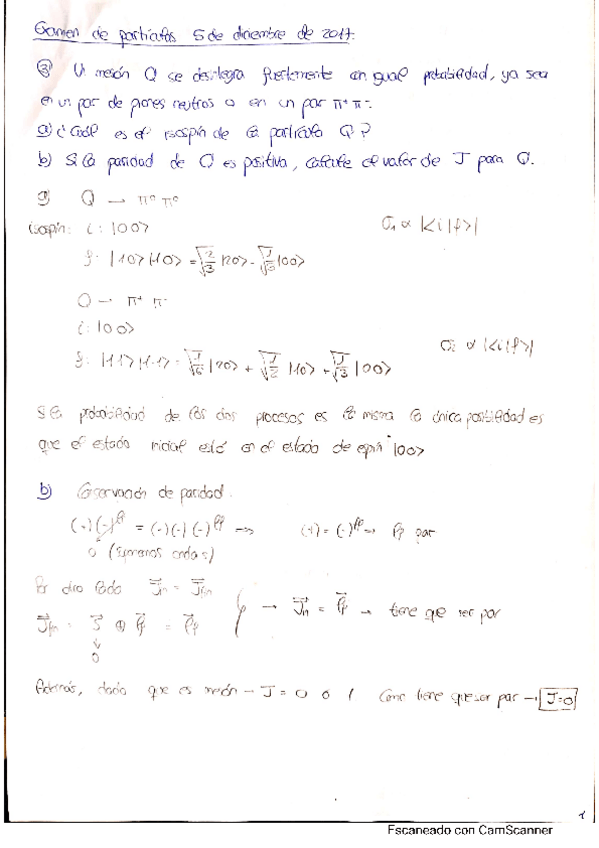 Examen de partículas 5 de diciembre de 2017.
③ Un mesón Q se desintegra fuertemente con igual probabilidad, ya sea
en un par de piones neutros o en un par π⁺π⁻.
a) ¿Cuál es el isospín de la partícula Q?
b) Si la paridad de Q es positiva, calcule el valor de J para Q.
a) Q → π⁰π⁰
isospín: i: |00>
σ₁ ∝ |<i|f>|
f: |10>|10> = √2/√3 |20> - √1/√3 |00>
Q → π⁺ π⁻
i: |00>
f: |11>|1-1> = √1/√6 |20> + √1/√2 |10> + √1/√3 |00>
σ₂ ∝ |<i|f>|
Si la probabilidad de los dos procesos es la misma la única posibilidad es
que el estado inicial esté en el estado de espín |00>
b) Conservación de paridad.
= (-)(-)(-) → (+) = (-) → par
0 (Suponemos onda s)
Por otro lado
→ tiene que ser par
0
Además, dado que es mesón → J = 0 o 1 Como tiene que ser par → J=0
1
Escaneado con CamScanner